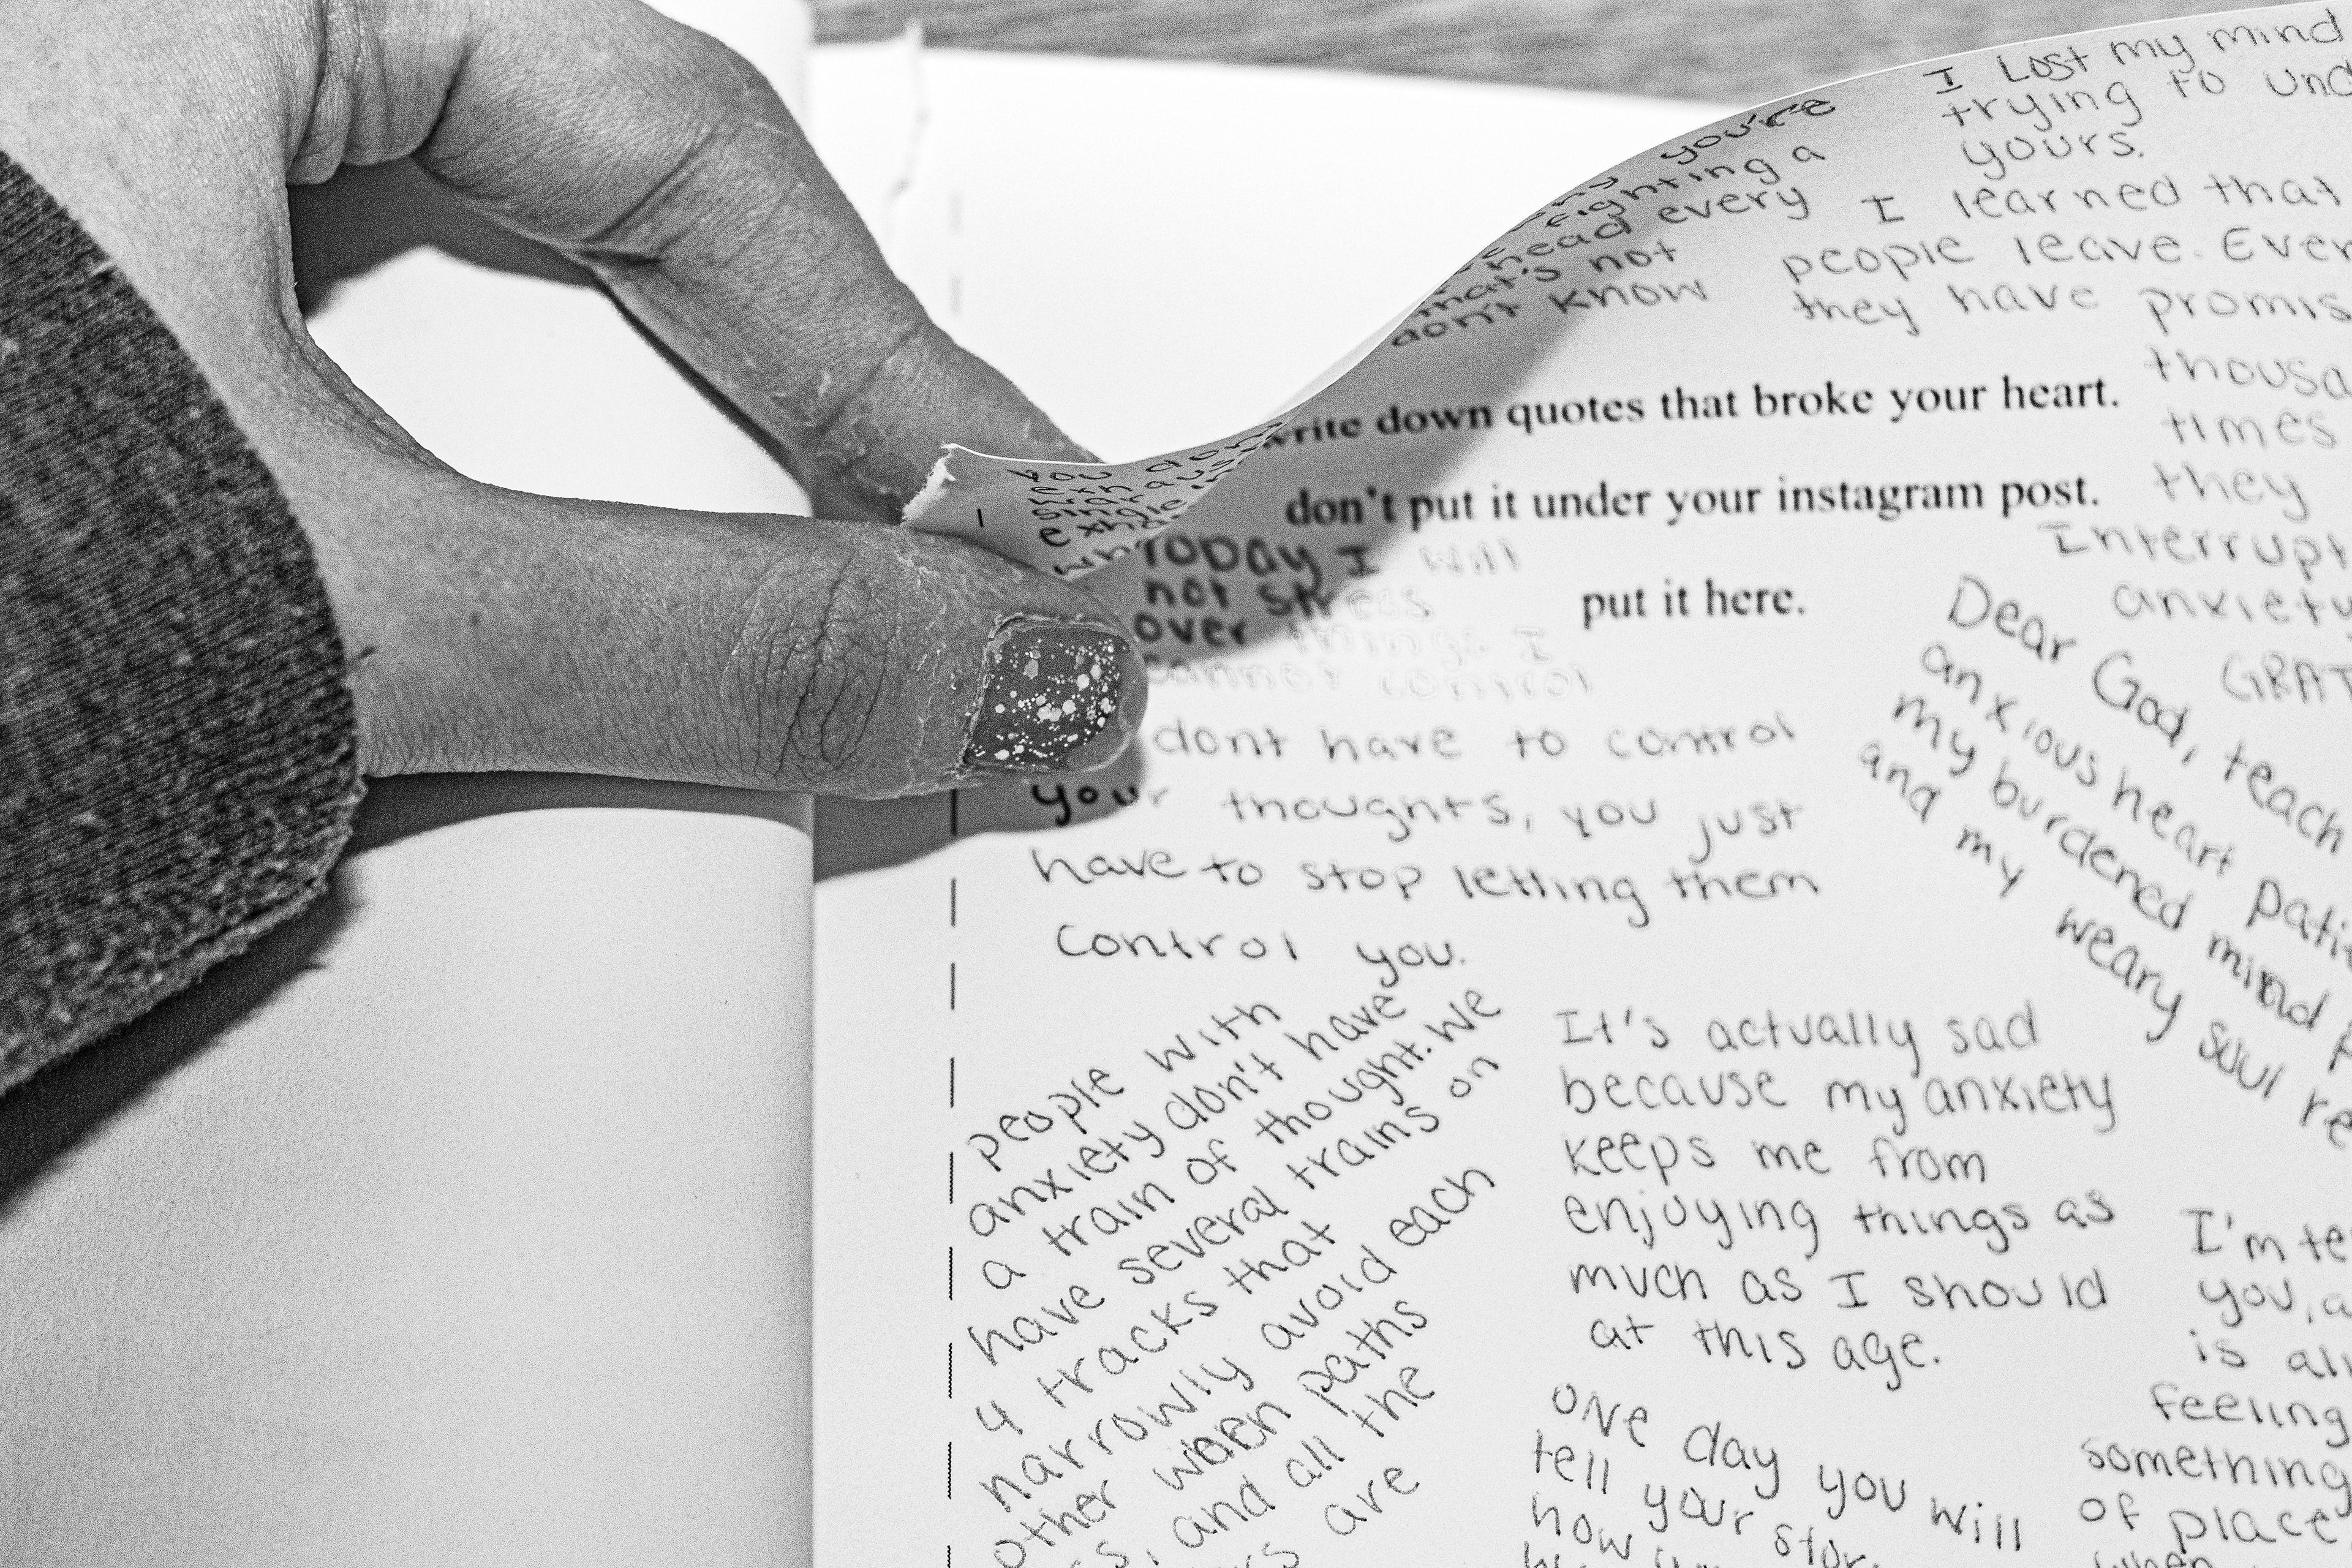 you're
fighting a
head every
that's not
don't know
I Lost my mind
trying to
yours.
I learned that
people leave. Even
they have
times
they
write down quotes that broke your heart.
don't put it under your instagram post.
put it here.
you don
single
TODAY I will
not stress
over things I
cannot control
dont have to control
your thoughts, you just
have to stop letting them
control you.
Interrupt
anxiety
Dear God, teach
anxious heart
my burdened mind
and my weary soul
people with
anxiety don't have
a train of thought. We
have several trains on
4 tracks that
narrowly avoid each
other when paths
and all the
are
It's actually sad
because my anxiety
keeps me from
enjoying things as
much as I should
at this age.
ONe day you will
tell your
how
I'm
you,
is
feeling
something
of place
when